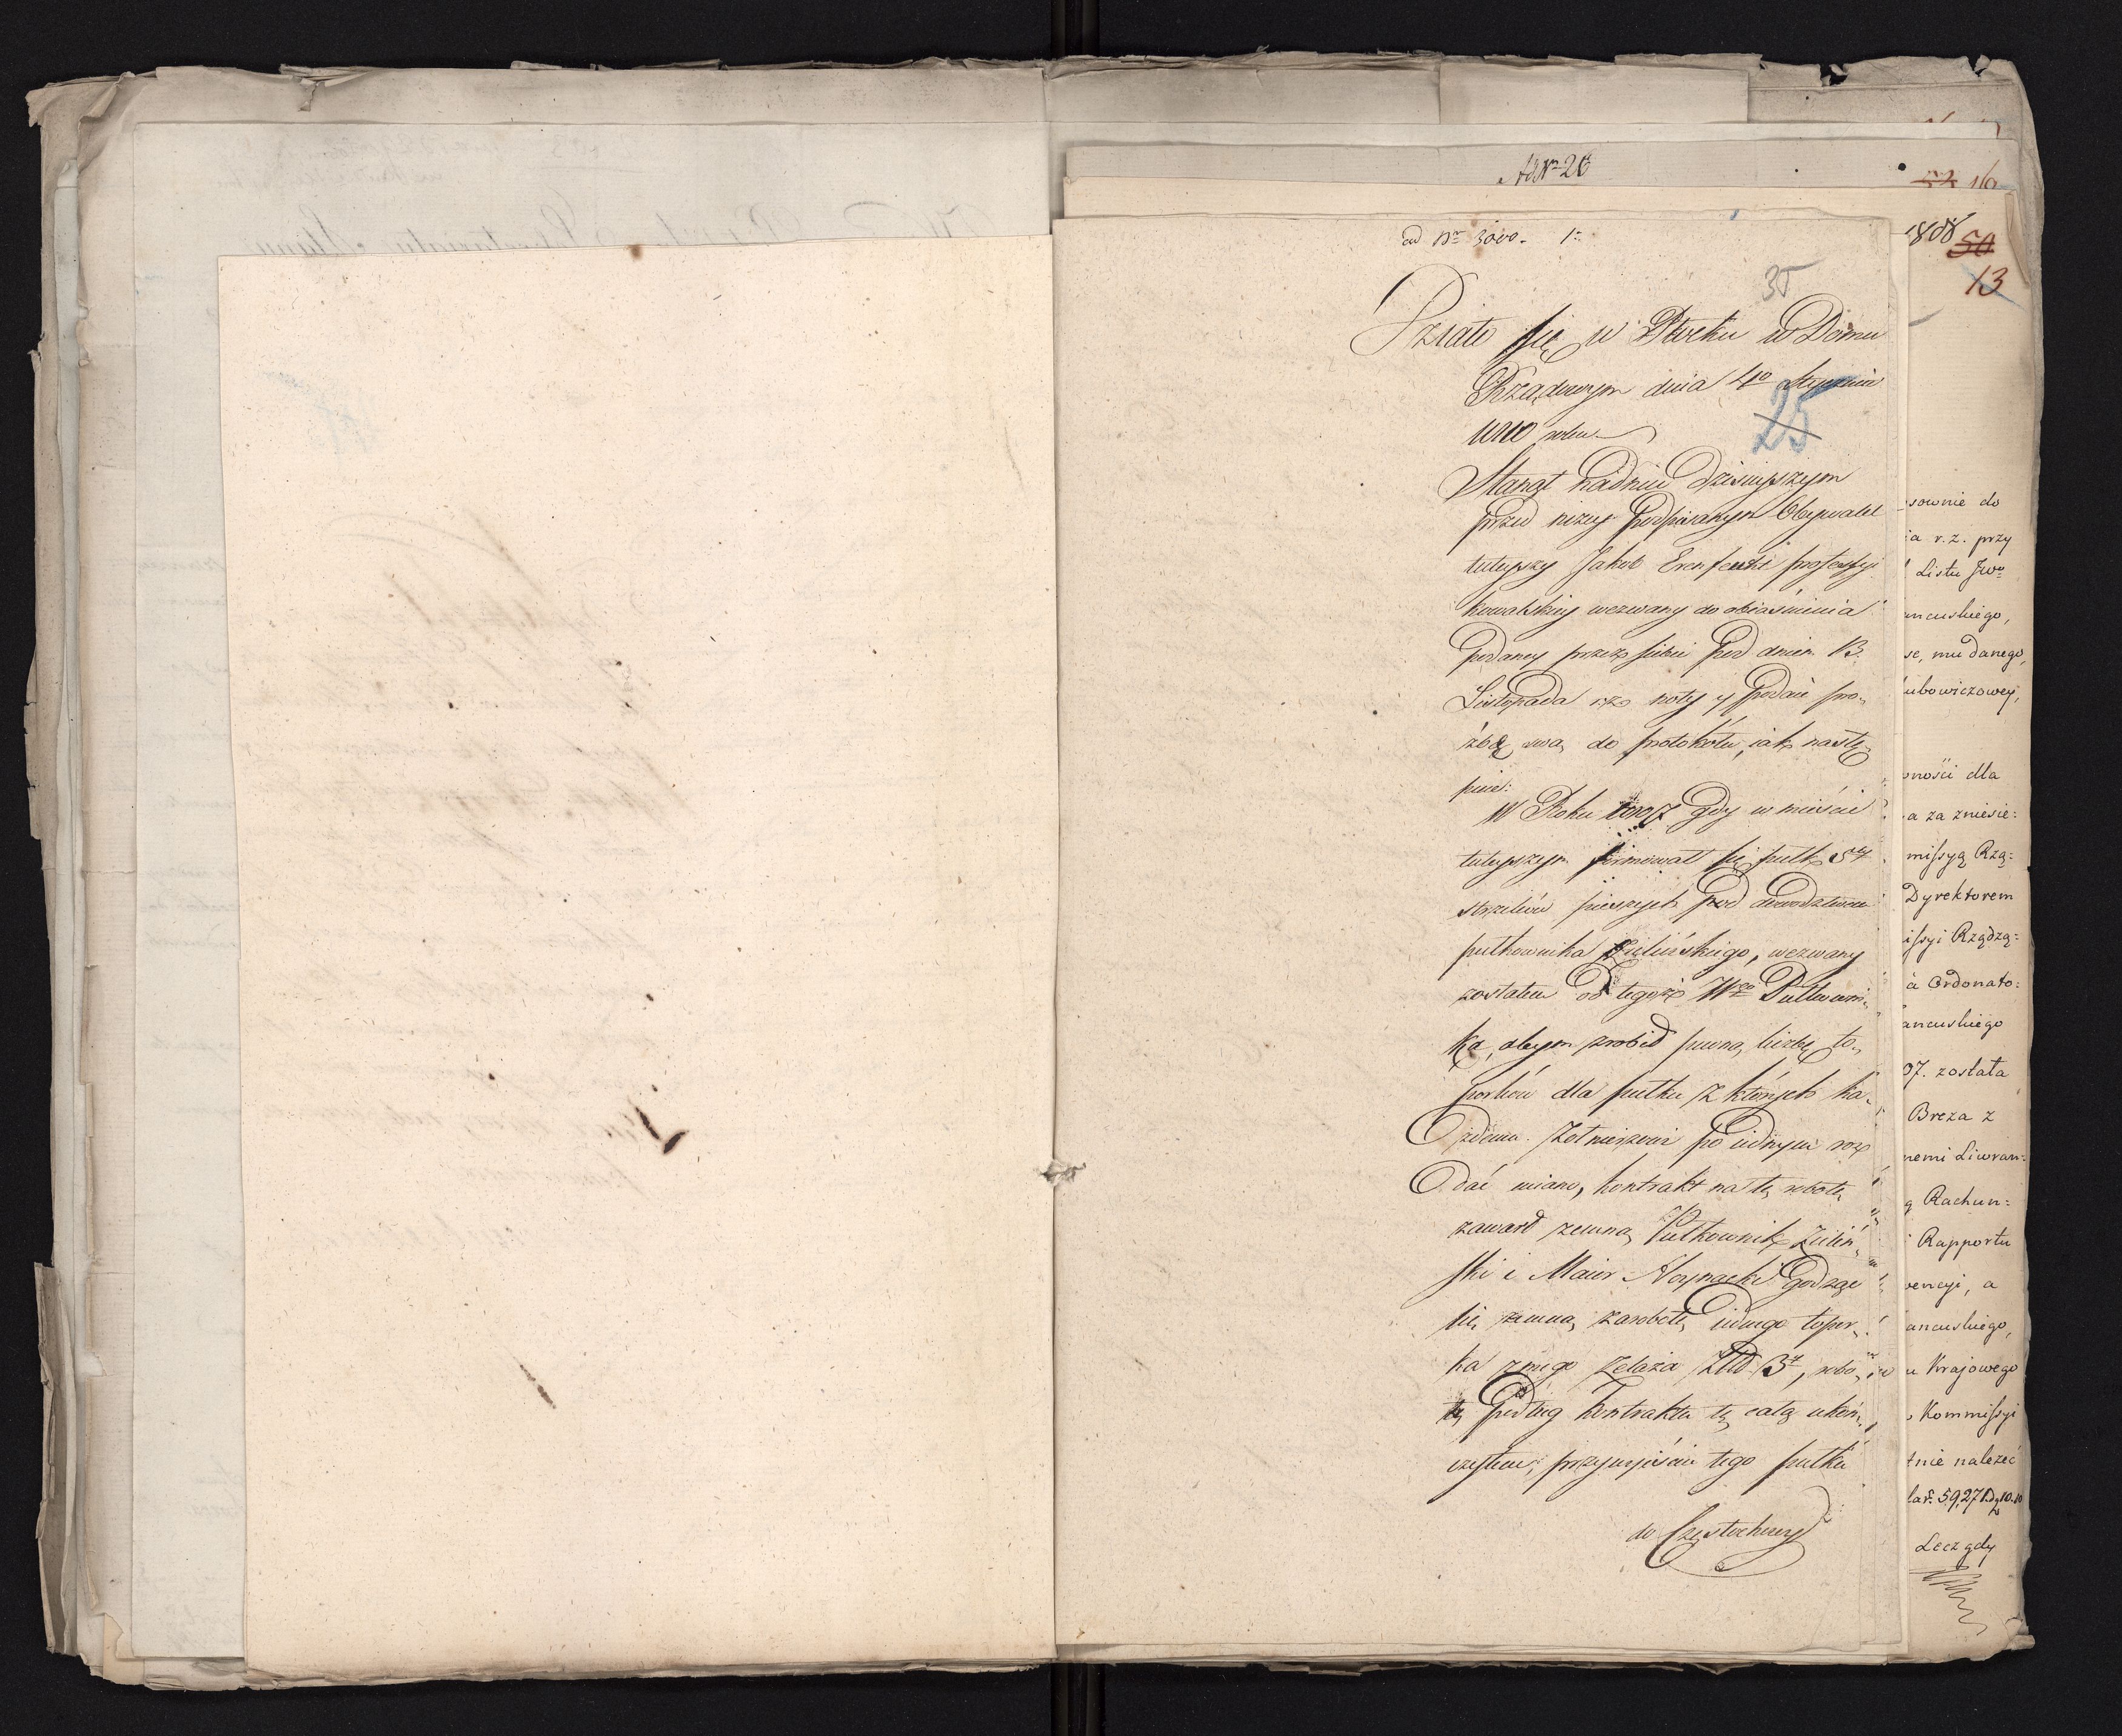 Ad Nr 20
52 16
1808
50
13
ad Nr 3000. 1º
35
Działo się w Płocku w Domu
Rządowym dnia 4go Stycznia
25
1810 roku
Stanął na dniu dzisieyszym
przed niżey podpisanym Obywatel
tuteyszy Jakob professyi
kowalskiey wezwany do obiaśnienia
podaney przez siebie pod dniem 13
Listopada rz noty y podał pro„
źbę swą do protokołu, iak nastę„
puie:
W Roku 1807 gdy w mieście
tuteyszym formował się pułk 5ty
strzelców pieszych pod dowodztwem
pułkownika Zielińskiego, wezwany
zostałem od tegoż Wgo Pułkowni„
ka, abym zrobił pewną liczbę to„
porków dla pułku z których ka„
żdemu żołnierzowi po iednym roz
dać miano, kontrakt na tę robotę
zawarł zemną Pułkownik Zieliń„
ski i Maior godząc
się zemną za robotę iednego topor„
ka z mego żelaza Złł 3, robo„
tę podług kontraktu tę całą ukoń„
czyłem, przy wyiściu tego pułku
do Częstochowy
sownie do
ia r. z. przy
Listu JWo
ancuskiego,
se, mu danego,
ubowiczowey,
oności dla
a za zniesie:
missyą Rzą:
Dyrektorem
issyi Rządzą:
à Ordonato:
ancuskiego
07. została
Breza z
nemi Liwran:
ą Rachun:
i Rapportu
wencyi, a
ancuskiego,
u Krajowego
o Kommissyi
tnie należeć
Lecz gdy